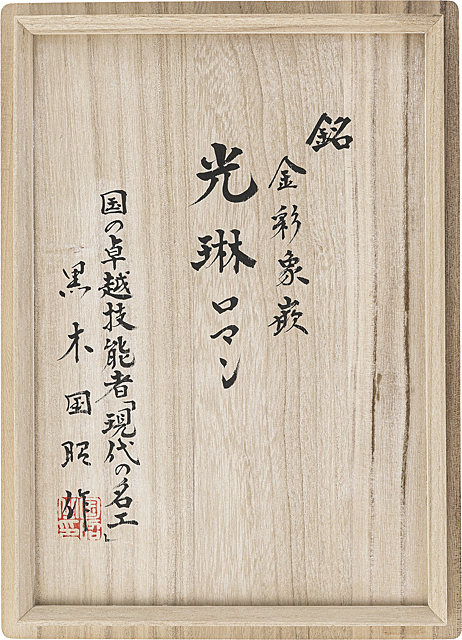 銘
金彩象嵌
光琳ロマン
国の卓越技能者「現代の名工」
黒木国昭作